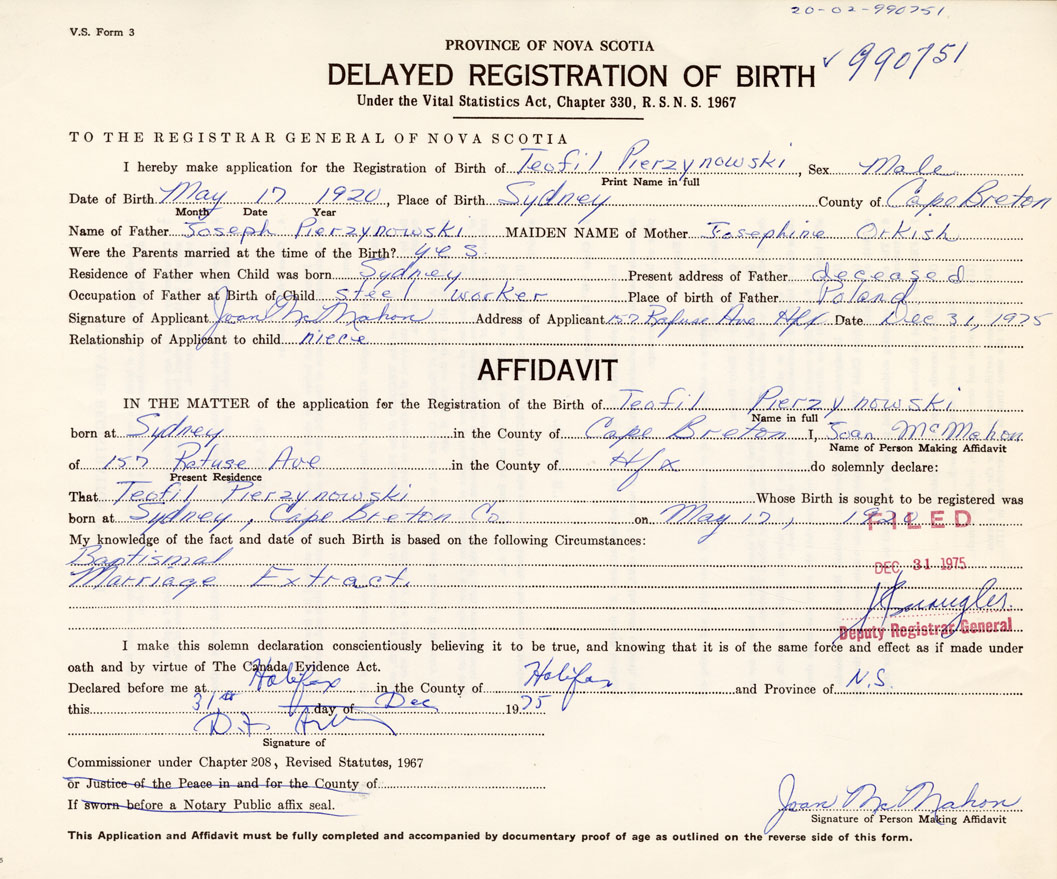 20-02-990751
V.S. Form 3
PROVINCE OF NOVA SCOTIA
✓ 990751
DELAYED REGISTRATION OF BIRTH
Under the Vital Statistics Act, Chapter 330, R.S.N.S. 1967
TO THE REGISTRAR GENERAL OF NOVA SCOTIA
I hereby make application for the Registration of Birth of Teofil Pierzynowski, Sex Male
Print Name in full
Date of Birth May 17 1920, Place of Birth Sydney County of Cape Breton
Month Date Year
Name of Father Joseph Pierzynowski MAIDEN NAME of Mother Josephine Orkish
Were the Parents married at the time of the Birth? yes.
Residence of Father when Child was born Sydney Present address of Father deceased
Occupation of Father at Birth of Child steel worker Place of birth of Father Poland
Signature of Applicant Joan McMahon Address of Applicant 157 Ave Hfx Date Dec 31, 1975
Relationship of Applicant to child niece
AFFIDAVIT
IN THE MATTER of the application for the Registration of the Birth of Teofil Pierzynowski
Name in full
born at Sydney in the County of Cape Breton I, Joan McMahon
Name of Person Making Affidavit
of 157 Ave in the County of Hfx do solemnly declare:
Present Residence
That Teofil Pierzynowski Whose Birth is sought to be registered was
born at Sydney, Cape Breton Co. on May 17, 1920
FILED
My knowledge of the fact and date of such Birth is based on the following Circumstances:
Baptismal
DEC 31 1975
Marriage Extract.
Deputy Registrar General
I make this solemn declaration conscientiously believing it to be true, and knowing that it is of the same force and effect as if made under
oath and by virtue of The Canada Evidence Act.
Declared before me at Halifax in the County of Halifax and Province of N.S.
this 31st day of Dec 1975
Signature of
Commissioner under Chapter 208, Revised Statutes, 1967
or Justice of the Peace in and for the County of
If sworn before a Notary Public affix seal.
Joan McMahon
Signature of Person Making Affidavit
This Application and Affidavit must be fully completed and accompanied by documentary proof of age as outlined on the reverse side of this form.